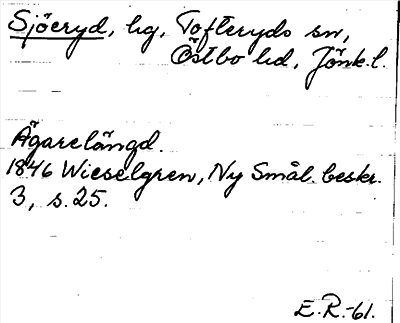 Sjöeryd, hg, Tofteryds sn,
Östbo hd, Jönk.l.
Ägarelängd.
1846 Wieselgren, Ny Smål. beskr.
3, s.25.
E.R.-61.